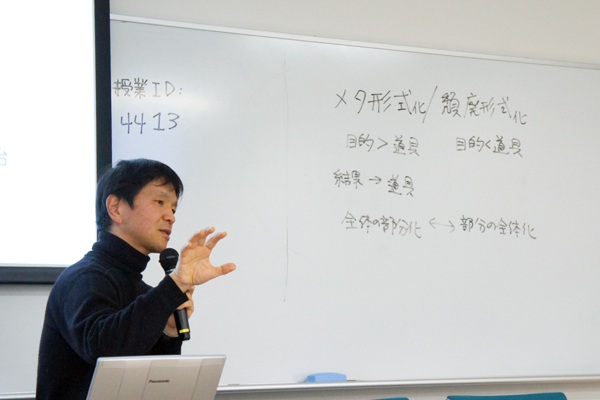 授業ID:
4413
メタ形式化/頽廃形式化
目的>道具 目的<道具
結果→道具
全体の部分化 ↔ 部分の全体化
Panasonic